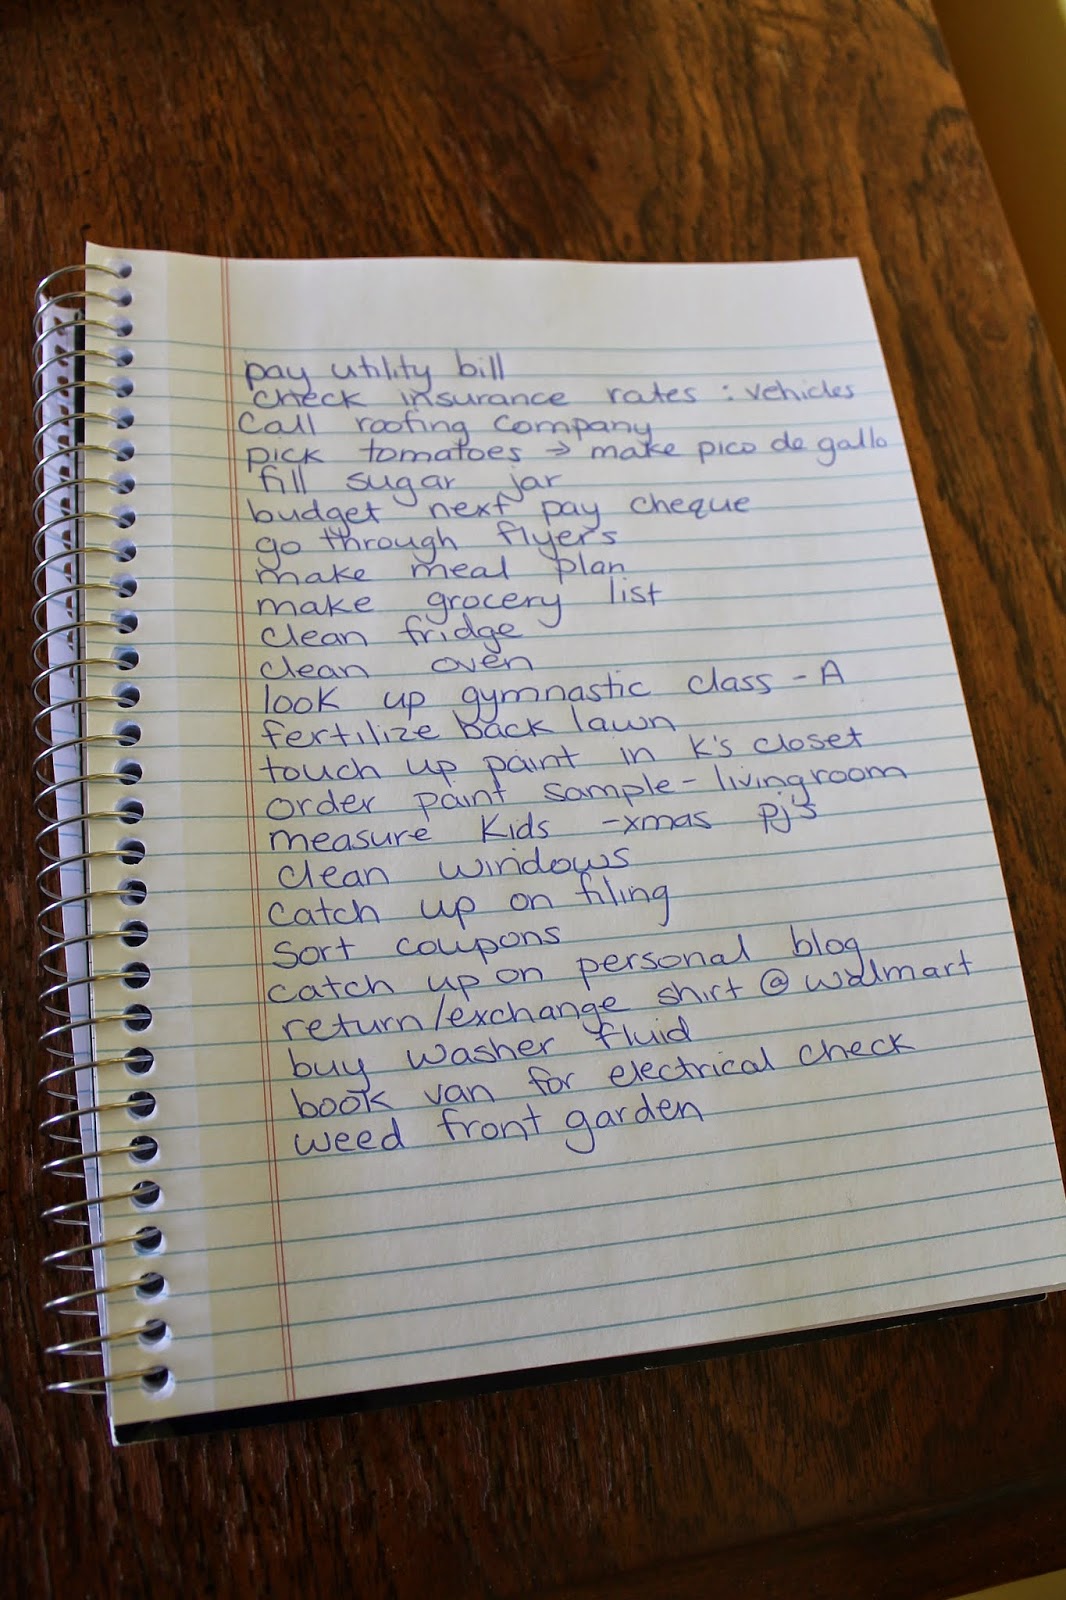 pay utility bill
check insurance rates : vehicles
Call roofing company
pick tomatoes → make pico de gallo
fill sugar jar
budget next pay cheque
go through flyers
make meal plan
make grocery list
clean fridge
clean oven
look up gymnastic class - A
fertilize back lawn
touch up paint in K's closet
order paint sample - livingroom
measure kids - xmas pj's
clean windows
catch up on filing
sort coupons
catch up on personal blog
return/exchange shirt @ walmart
buy washer fluid
book van for electrical check
weed front garden